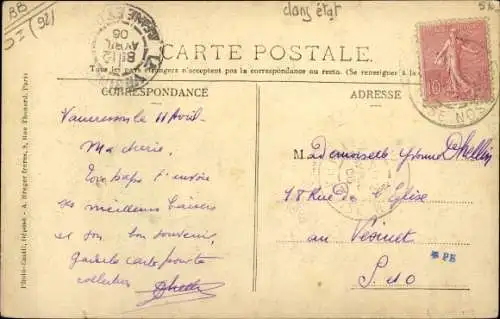 BB
(92)
dans état
CARTE POSTALE.
Tous les pays étrangers n'acceptent pas la correspondance au recto. (Se renseigner à la
CORRESPONDANCE
ADRESSE
10
Vaucresson le 11 Avril
Ma cherie,
Ton papa t'envoie
ses meilleurs baisers
et son bon souvenir,
garde cette carte pour ta
collection
Mademoiselle Yvonne
18 Rue de l'Eglise
au Vésinet
S. et O
* PE
Photo-Contil, Déposé. - A. Breger frères, 9, Rue Thénard, Paris